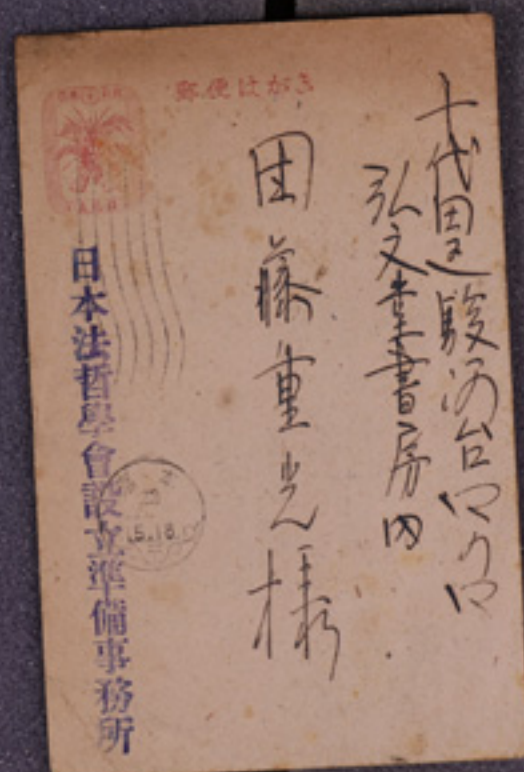 郵便はがき
千代田区駿河台四ノ四
弘文堂書房内
団藤重光様
日本法哲學會設立準備事務所
5.18